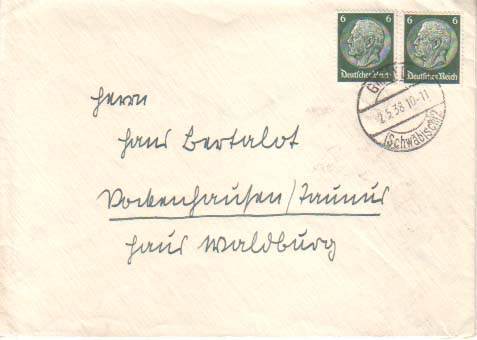 6 6 6 6
Deutsches Reich Deutsches Reich
2.5.38.10-11
(Schwäbisch)
Herrn
Hans Bertalot
Vockenhausen/Taunus
Haus Waldburg